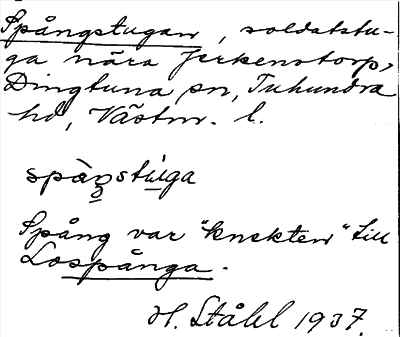 Spångstugan, soldatstu-
ga nära Jerkenstorp,
Dingtuna sn, Tuhundra
hd, Västm. l.
spåŋstúga
Spång var "knekten" till
Lospånga.
H. Ståhl 1937.